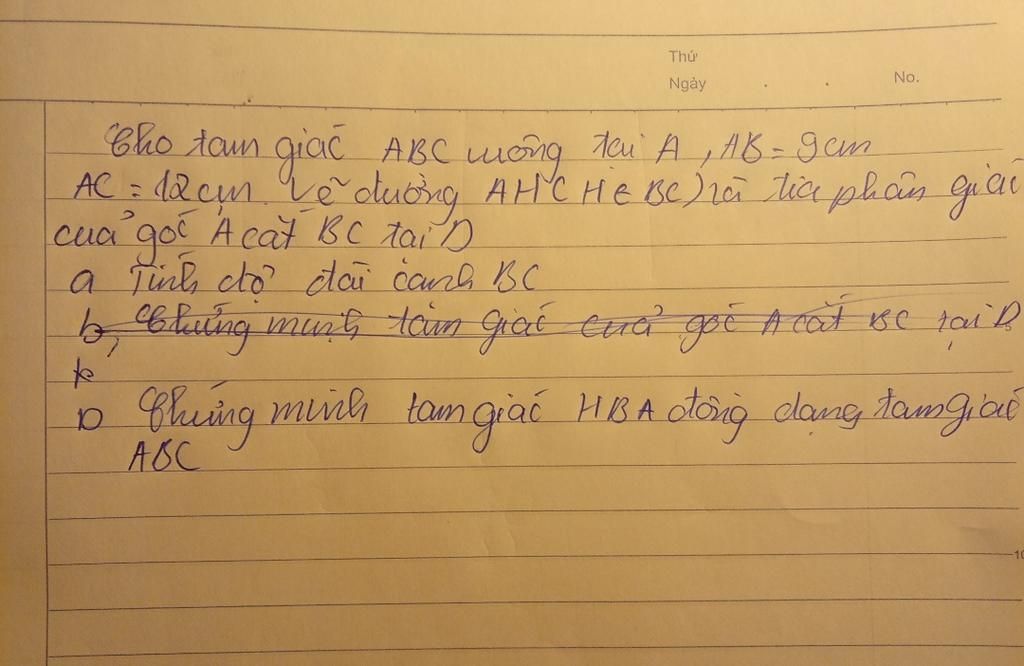 Thứ
Ngày . . No.
Cho tam giác ABC vuông tại A, AB = 9cm
AC = 12cm. Vẽ đường AH (H ∈ BC) và tia phân giác
của góc A cắt BC tại D
a Tính độ dài cạnh BC
b, Chứng minh tam giác của góc A cắt BC tại D
b Chứng minh tam giác HBA đồng dạng tam giác
ABC
10